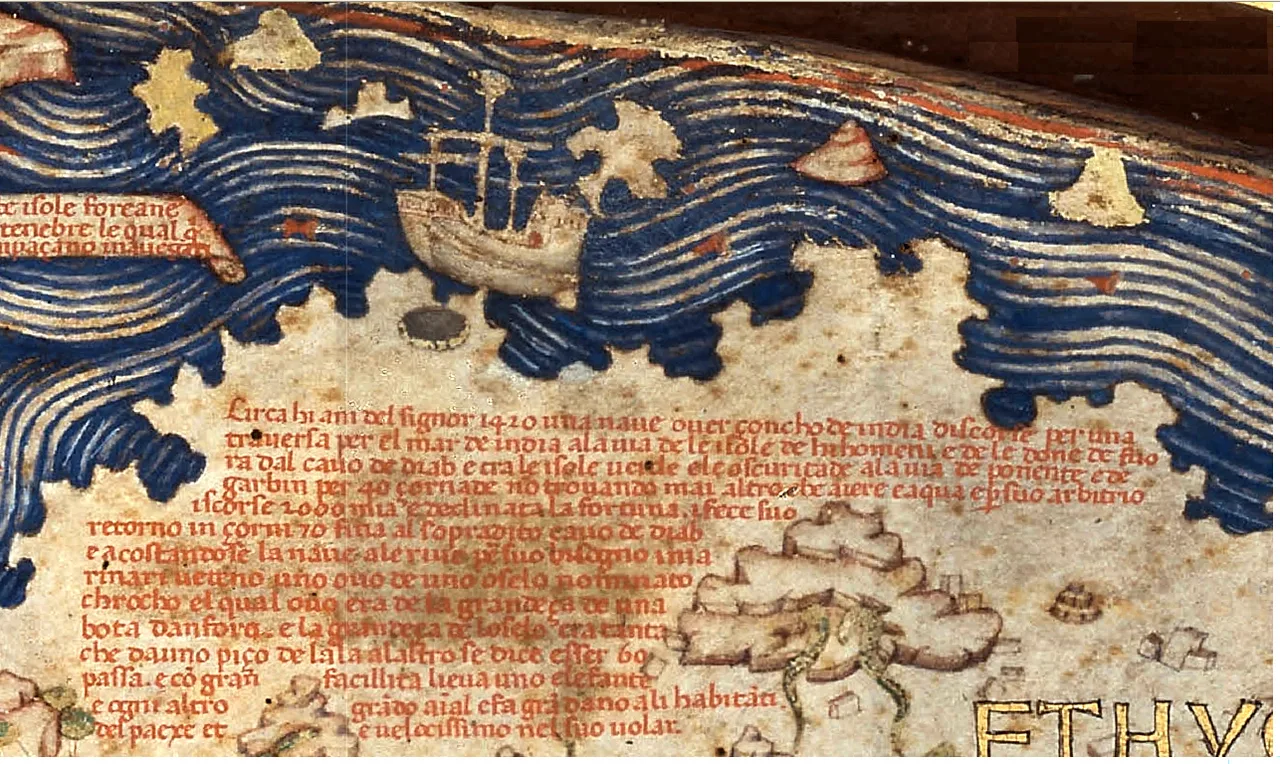 isole foreane
tenebre le qual
Circa hi ani del signor 1420 una naue ouer çoncho de india discorse per una
traversa per el mar de india ala uia de le isole de hi homeni e de le done de fuo
ra dal cauo de diab e tra le isole uerde e le oscuritade ala uia de ponente e de
garbin per 40 çornade nō trouando mai altro che aiere e aqua e ꝑ suo arbitrio
iscorse 2000 mia e declinata la fortuna i fece suo
retorno in çorni 70 fina al sopradito cauo de diab
e acostandose la naue ale riue ꝑ suo bisogno i ma
rinari uedeno uno ouo de uno oselo nominato
chrocho el qual ouo era de la grandeça de una
bota danfora e la grandeça de loselo era tanta
che dauno piço de lala alaltro se dice esser 60
passa. e cō gran facilita lieua uno elefante
e ogni altro grādo aīal e fa grā dano ali habitāti
del paexe et e uelocissimo nel suo uolar.
ETHYO